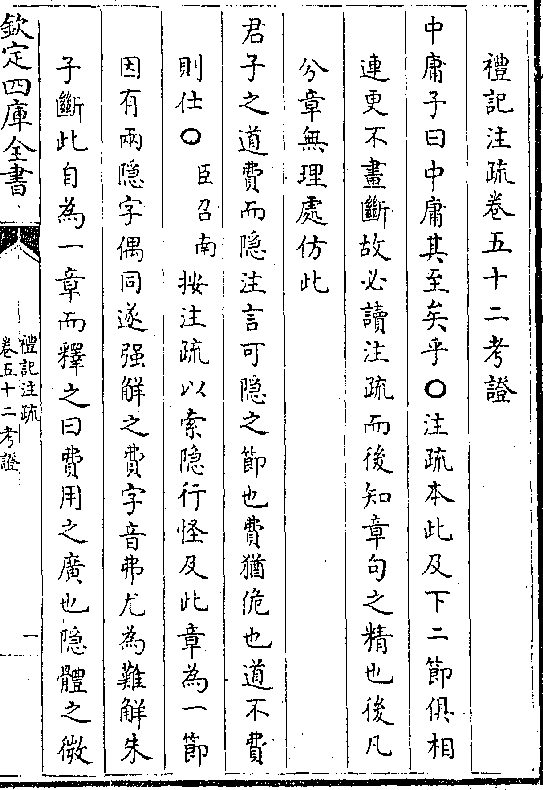 禮記注疏卷五十二考證
中庸子曰中庸其至矣乎○注疏本此及下二節俱相
連更不畫斷故必讀注疏而後知章句之精也後凡
分章無理處仿此
君子之道費而隱注言可隱之節也費猶佹也道不費
則仕○臣召南按注疏以索隱行怪及此章為一節
因有兩隱字偶同遂强解之費字音弗尤為難解朱
子斷此自為一章而釋之曰費用之廣也隱體之微
欽定四庫全書
禮記注疏
卷五十二考證
一